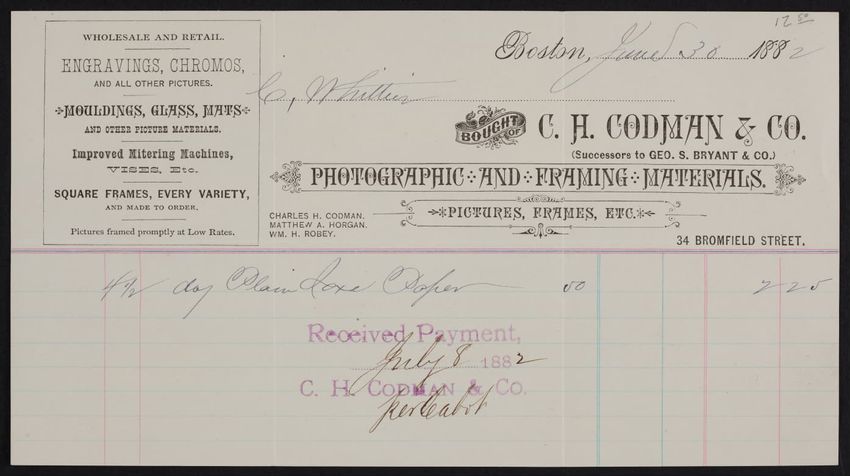 12 50
WHOLESALE AND RETAIL.
ENGRAVINGS, CHROMOS,
AND ALL OTHER PICTURES.
MOULDINGS, GLASS, MATS
AND OTHER PICTURE MATERIALS.
Improved Mitering Machines,
VISES, Etc.
SQUARE FRAMES, EVERY VARIETY,
AND MADE TO ORDER.
Pictures framed promptly at Low Rates.
Boston, June 30 1882
C, Whittier
BOUGHT OF C. H. CODMAN & CO.
(Successors to GEO. S. BRYANT & CO.)
PHOTOGRAPHIC AND FRAMING MATERIALS.
PICTURES, FRAMES, ETC.
CHARLES H. CODMAN.
MATTHEW A. HORGAN.
WM. H. ROBEY.
34 BROMFIELD STREET.
4 1/2 doz Plain Saxe Paper 50 2 25
Received Payment,
July 8 1882
C. H. CODMAN & CO.
per Cabot